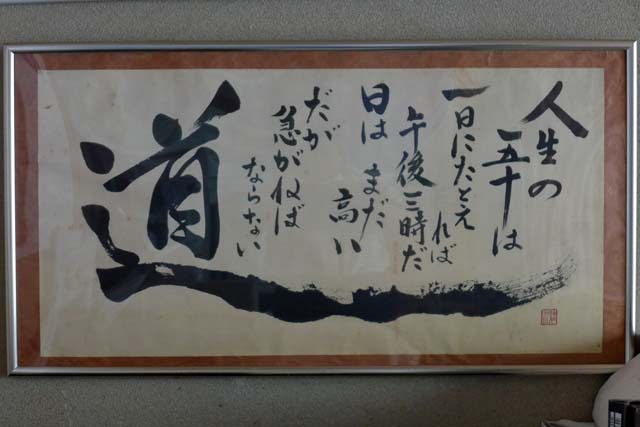 人生の
五十は
一日にたとえれば
午後三時だ
日はまだ
高い
だが
急がねば
ならない
道